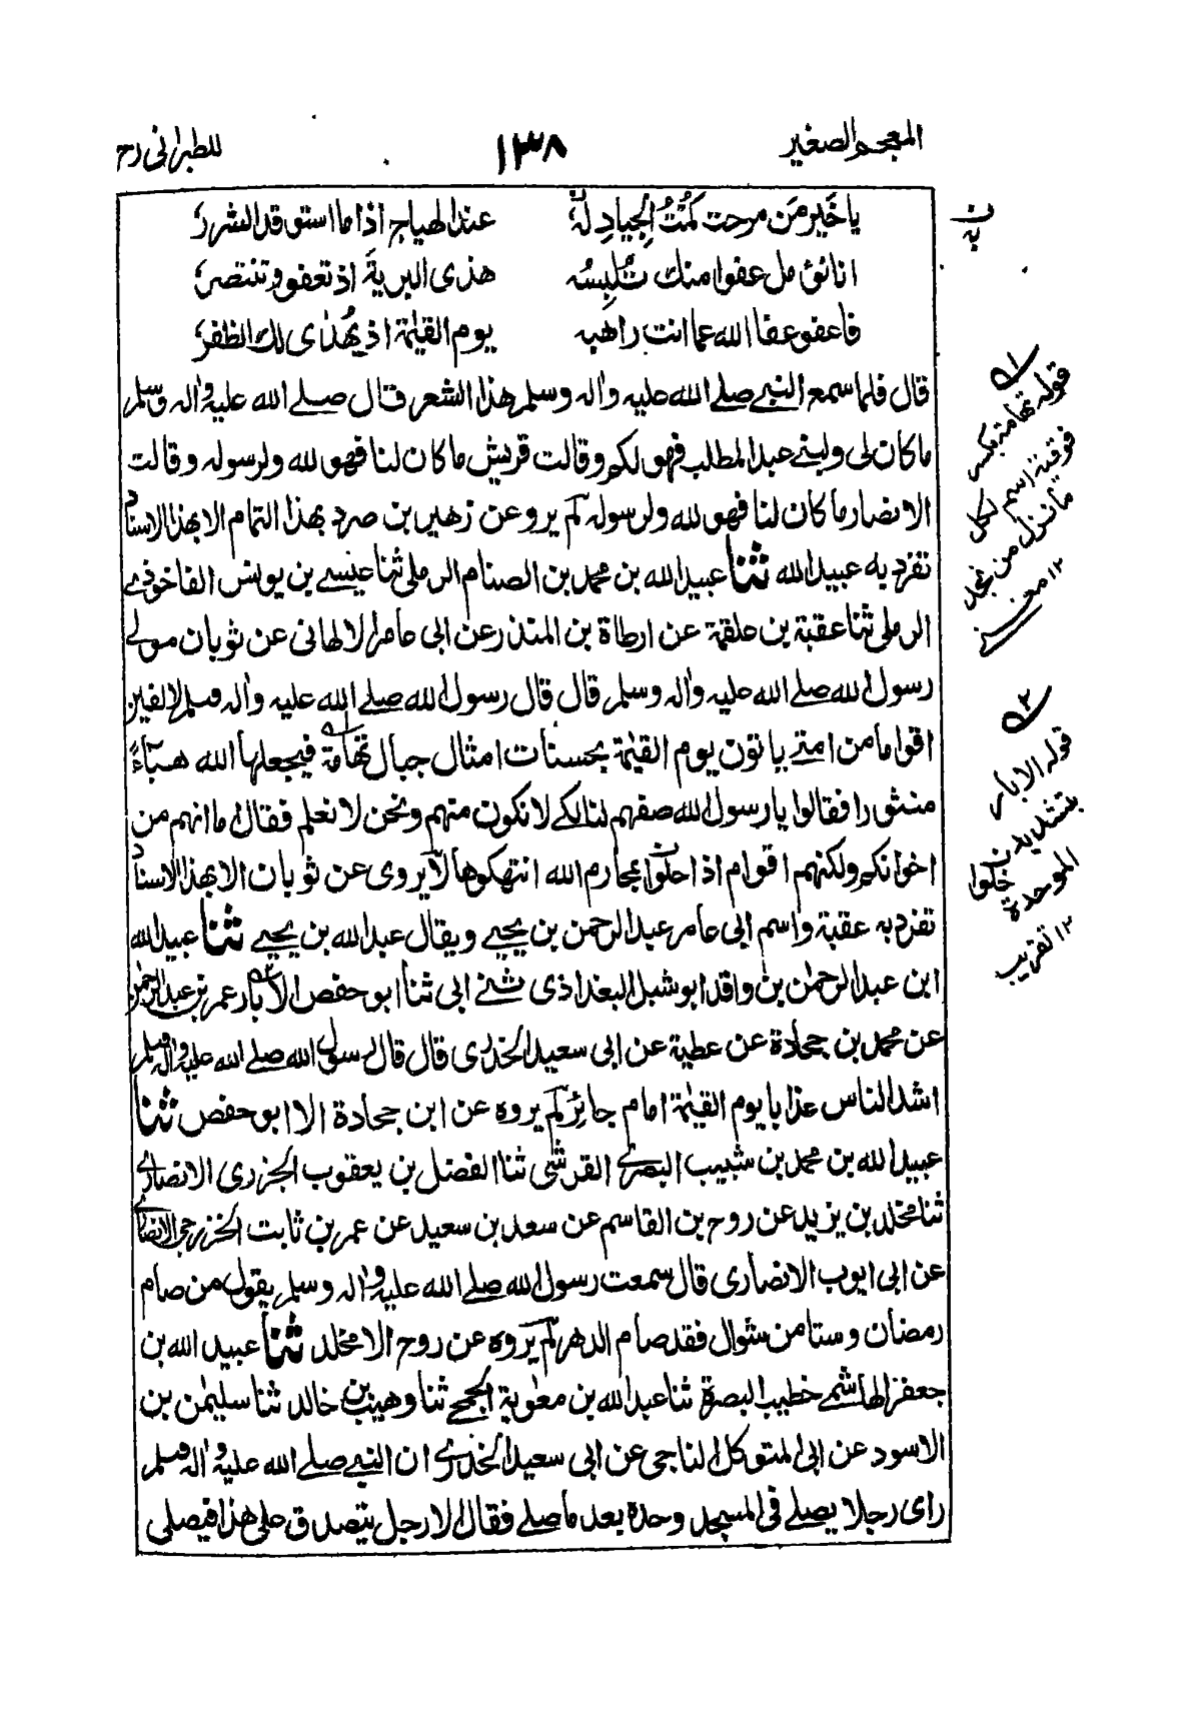 المعجم الصغير
١٣٨
للطبرانی رح
یا خَیر مَن مرحت کُمْتُ الجیادِ لهٗ عند الهیاج اذا ما استوقد الشررُ
انا نؤمل عفوا منك تُلبِسُه هذی البریةَ اذ تعفو وتنتصرُ
فاعفو عفا الله عما انت راهبه یوم القیٰمة اذ یُهدٰی لك الظفرُ
قال فلما سمع النبی صلے الله علیه واٰله وسلم هذا الشعر قال صلے الله علیه واٰله وسلم
ما کان لی ولبنی عبد المطلب فهو لکم وقالت قریش ما کان لنا فهو لله ولرسوله وقالت
الانصار ما کان لنا فهو لله ولرسوله لم یرو عن زهیر بن صرد بهذا التمام الا بهذا الاسناد
تفرد به عبید الله ثنا عبید الله بن محمد بن الصنام الرملی ثنا عیسے بن یونس الفاخوری
الرملی ثنا عقبة بن علقمة عن ارطاة بن المنذر عن ابی عامر الالهانی عن ثوبان مولے
رسول الله صلے الله علیه واٰله وسلم قال قال رسول الله صلے الله علیه واٰله وسلم لالفین
اقواما من امتے یاتون یوم القیٰمة بحسنات امثال جبال تهامة فیجعلها الله هبآءً
منثورا فقالوا یا رسول الله صفهم لنا لکے لا نکون منهم ونحن لا نعلم فقال اما انهم من
اخوانکم ولکنهم اقوام اذا خلوا بمحارم الله انتهکوها لا یروی عن ثوبان الا بهذا الاسناد
تفرد به عقبة واسم ابی عامر عبد الرحمن بن یحیے ویقال عبد الله بن یحیے ثنا عبید الله
ابن عبد الرحمٰن بن واقد ابو شبل البغداذی ثنے ابی ثنا ابو حفص الابار عمر بن عبد الرحمٰن
عن محمد بن جحادة عن عطیة عن ابی سعید الخدری قال قال رسول الله صلے الله علیه واٰله وسلم
اشد الناس عذابا یوم القیٰمة امام جائر لم یروه عن ابن جحادة الا ابو حفص ثنا
عبید الله بن محمد بن شبیب البصرے القرشی ثنا الفضل بن یعقوب الجزری الانصارے
ثنا مخلد بن یزید عن روح بن القاسم عن سعد بن سعید عن عمر بن ثابت الخزرجی الانصاری
عن ابی ایوب الانصاری قال سمعت رسول الله صلے الله علیه واٰله وسلم یقول من صام
رمضان وستا من شوال فقد صام الدهر لم یروه عن روح الا مخلد ثنا عبید الله بن
جعفر الهاشمے خطیب البصرة ثنا عبد الله بن معٰویة الجمحے ثنا وهیب بن خالد ثنا سلیمٰن بن
الاسود عن ابی المتوکل الناجی عن ابی سعید الخدرے ان النبے صلے الله علیه واٰله وسلم
رای رجلا یصلے فی المسجد وحده بعد ما صلے فقال الا رجل یتصدق علی هذا فیصلی
ن
به
١
قوله تهامة بکسر
فوقیة اسم لکل
ما نزل من نجد
١٢ مغنے
٢
قوله الابار
بتشدید
الموحدة
١٢ تقریب
ن خلوا